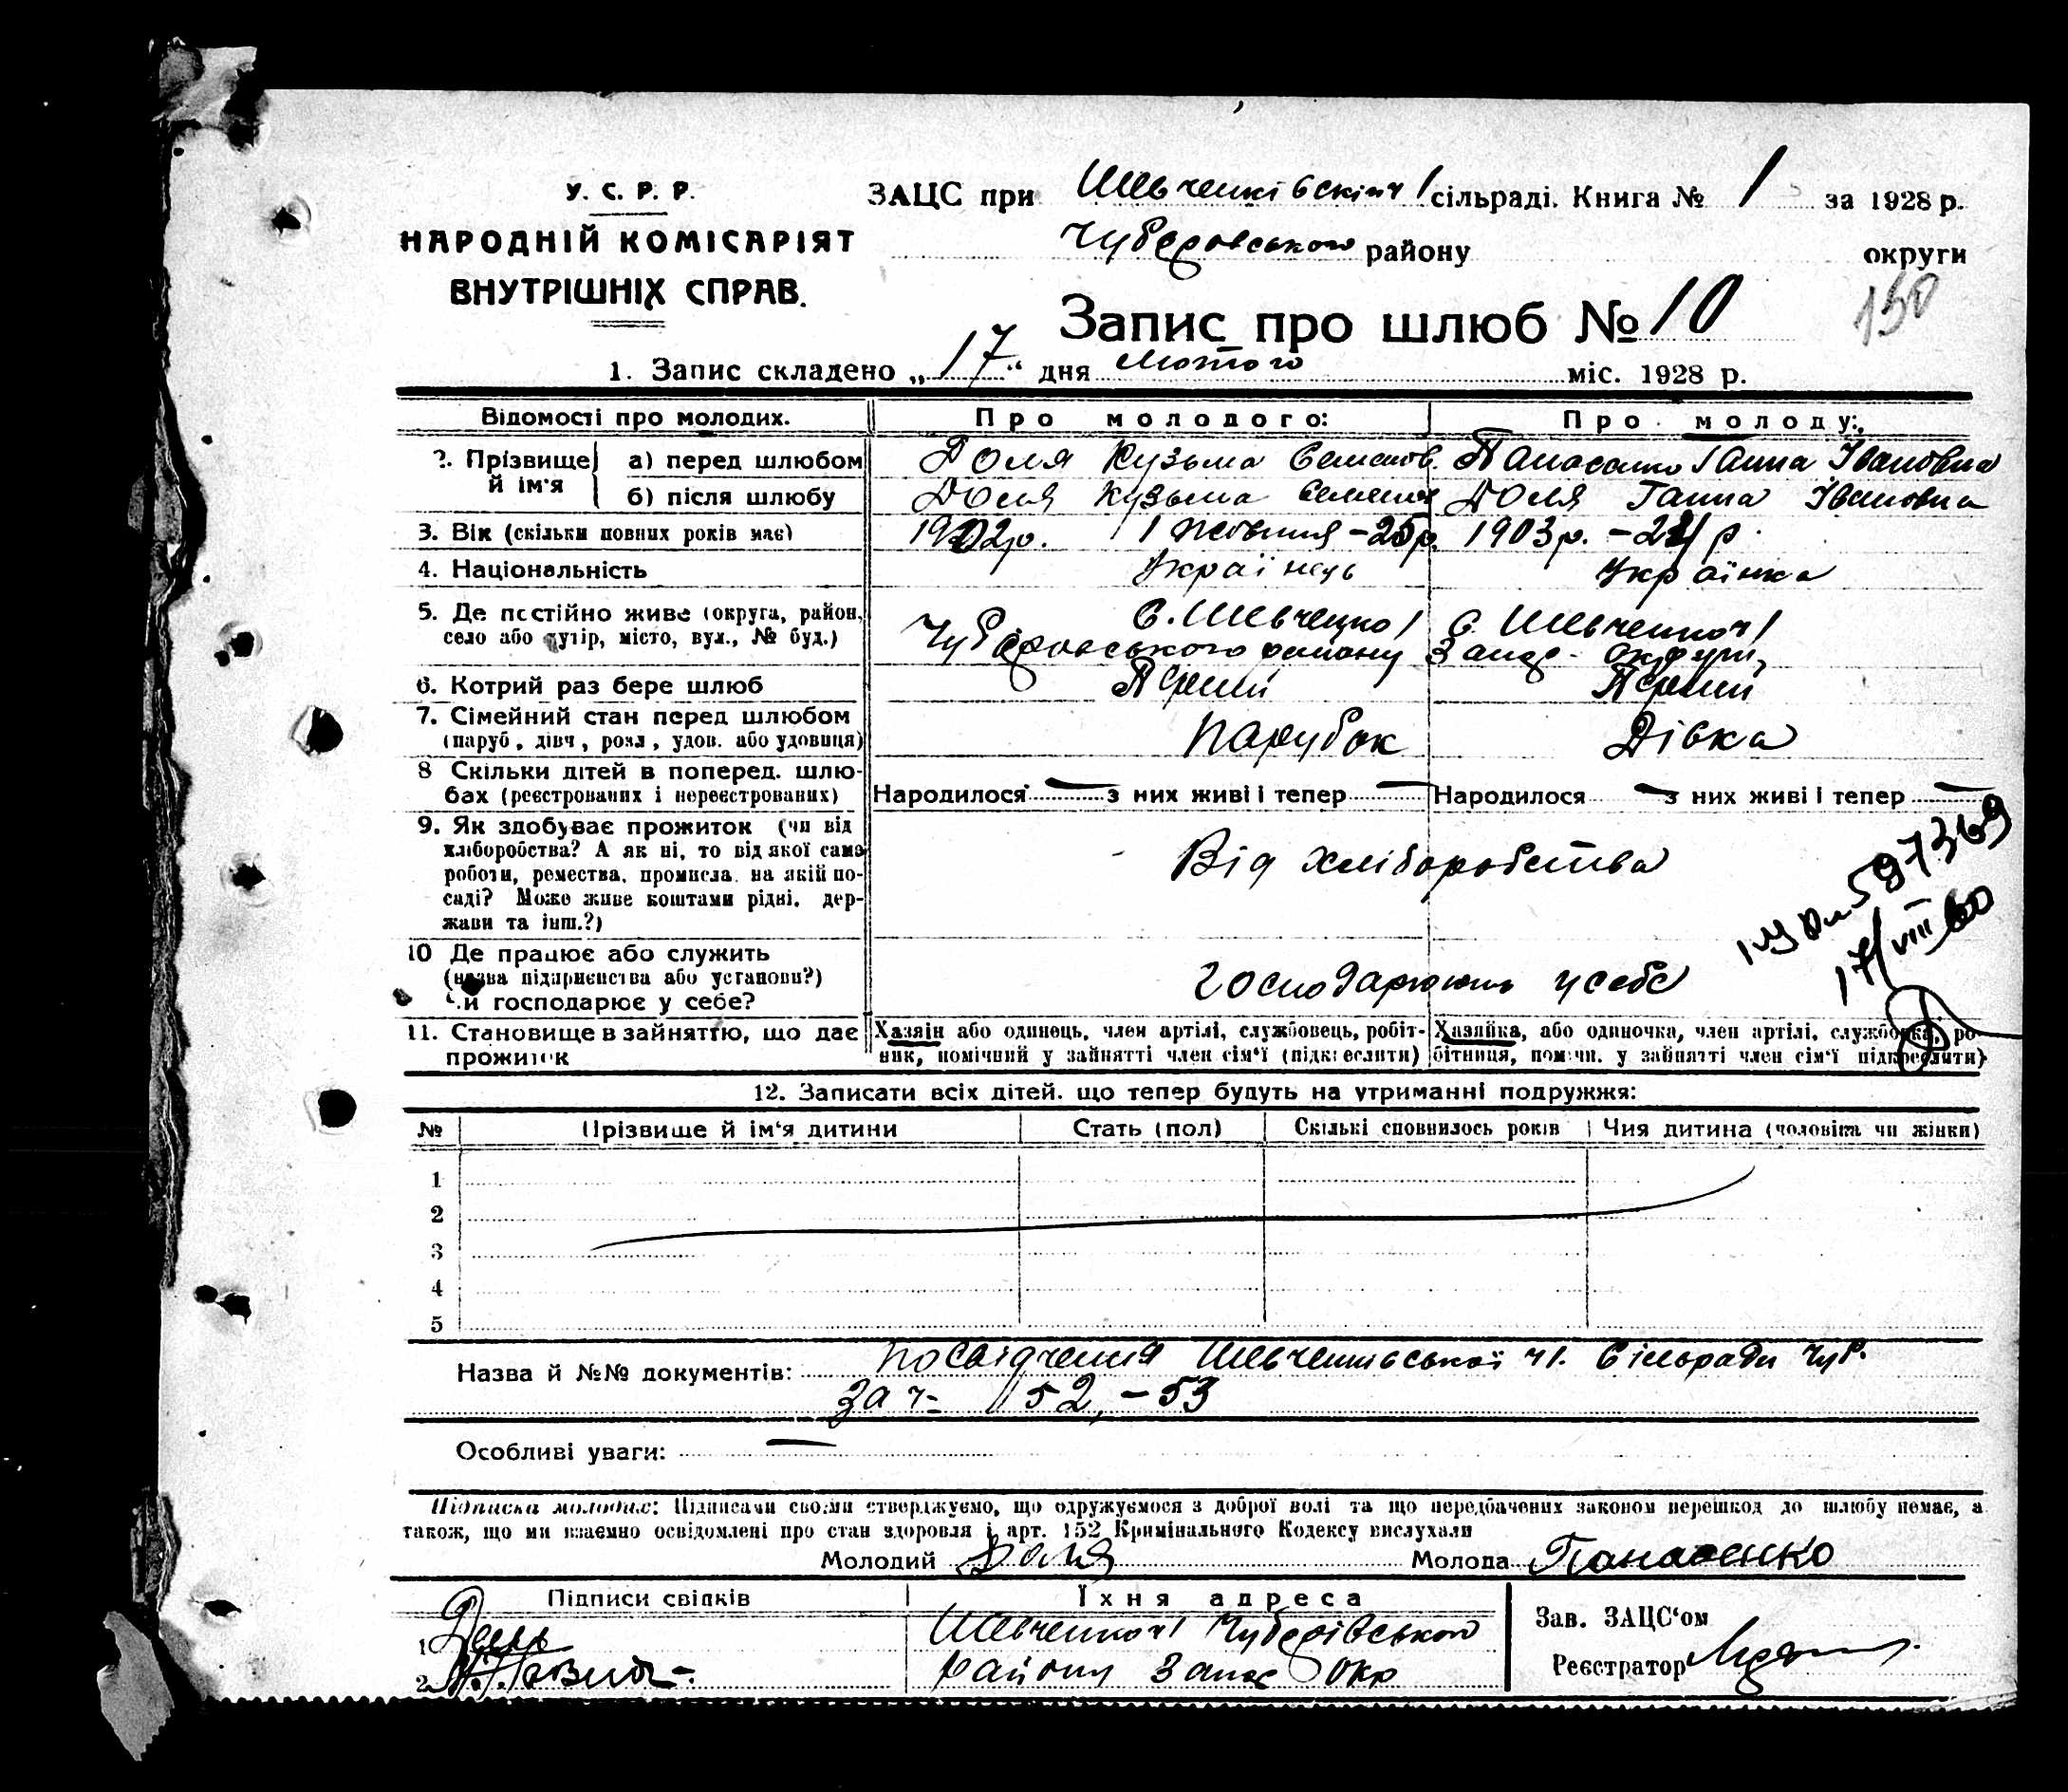 У. С. Р. Р.
НАРОДНІЙ КОМІСАРІЯТ
ВНУТРІШНІХ СПРАВ.
ЗАЦС при Шевченківській 1 сільраді. Книга № 1 за 1928 р.
Чубаровського району округи
Запис про шлюб № 10
150
1. Запис складено „17“ дня лютого міс. 1928 р.
Відомості про молодих. Про молодого: Про молоду:
2. Прізвище й ім'я а) перед шлюбом Доля Кузьма Семенов. Панасенко Ганна Івановна
б) після шлюбу Доля Кузьма Семенов Доля Ганна Івановна
3. Вік (скільки повних років має) 1902 р. 1 жовтня – 25 р. 1903 р. – 24 р.
4. Національність Українець Українка
5. Де постійно живе (округа, район, село або хутір, місто, вул., № буд.) с. Шевченко 1 Чубаровського району с. Шевченко ч 1 Запор. округи
6. Котрий раз бере шлюб Перший Перший
7. Сімейний стан перед шлюбом (паруб., дівч., розл., удов. або удовиця) Парубок Дівка
8 Скільки дітей в поперед. шлюбах (реєстрованих і нереєстрованих) Народилося — з них живі і тепер — Народилося — з них живі і тепер —
9. Як здобуває прожиток (чи від хліборобства? А як ні, то від якої само роботи, ремества, промисла, на якій посаді? Може живе коштами рідні, держави та інш.?) Від хліборобства
597369
17/VIII 60
10 Де працює або служить (назва підприємства або установи?) Чи господарює у себе? Господарюють у себе
11. Становище в зайняттю, що дає прожиток Хазяїн або одинець, член артілі, службовець, робітник, помічний у зайнятті член сім'ї (підкреслити) Хазяйка, або одиночка, член артілі, службовка, робітниця, помічн. у зайнятті член сім'ї підкреслити)
12. Записати всіх дітей, що тепер будуть на утриманні подружжя:
№ Прізвище й ім'я дитини Стать (пол) Скількі сповнилось років Чия дитина (чоловіка чи жінки)
1
2
3
4
5
Назва й №№ документів: Посвідчення Шевченківської ч 1. Сільради ЧуР.
за ч- 52, – 53
Особливі уваги: —
Підписка молодих: Підписами своїми стверджуємо, що одружуємося з доброї волі та що передбачених законом перешкод до шлюбу немає, а
також, що ми взаємно освідомлені про стан здоровля і арт. 152 Кримінального Кодексу вислухали
Молодий Доля Молода Панасенко
Підписи свідків Їхня адреса
1 Шевченко ч 1 Чубарівського
2 району Запор Окр
Зав. ЗАЦС'ом
Реєстратор